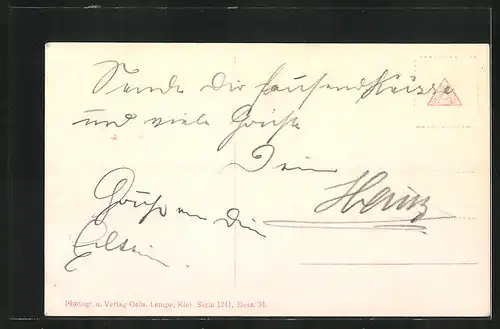 Sende Dir tausend Küsse
und viele Grüße
Dein
Heinz
Grüße an die
Eltern.
Photogr. u. Verlag Gebr. Lempe, Kiel Serie 1241, Dess. 34.